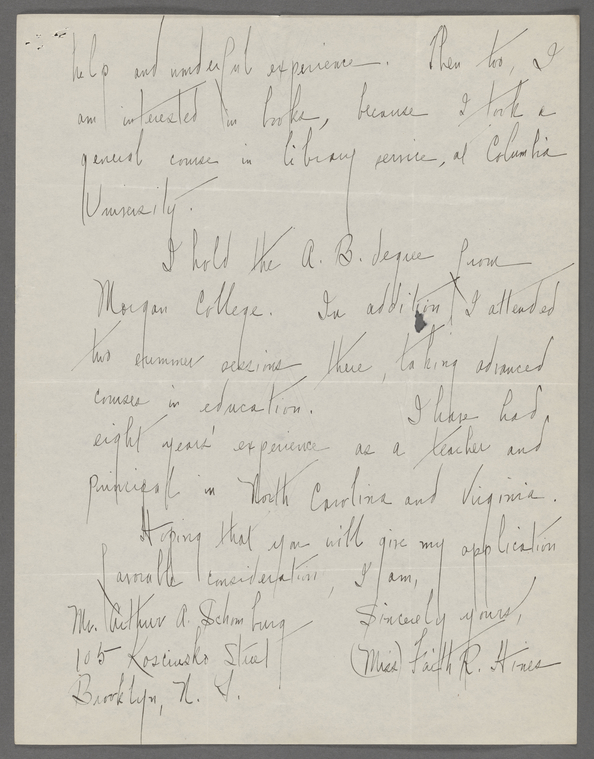 help and wonderful experience. Then too, I
am interested in books, because I took a
general course in library service, at Columbia
University.
I hold the A. B. degree from
Morgan College. In addition I attended
two summer sessions there, taking advanced
courses in education. I have had
eight years' experience as a teacher and
principal in North Carolina and Virginia.
Hoping that you will give my application
favorable consideration, I am,
Sincerely yours,
(Miss) Faith R. Hines
Mr. Arthur A. Schomburg
105 Kosciusko Street
Brooklyn, N. Y.